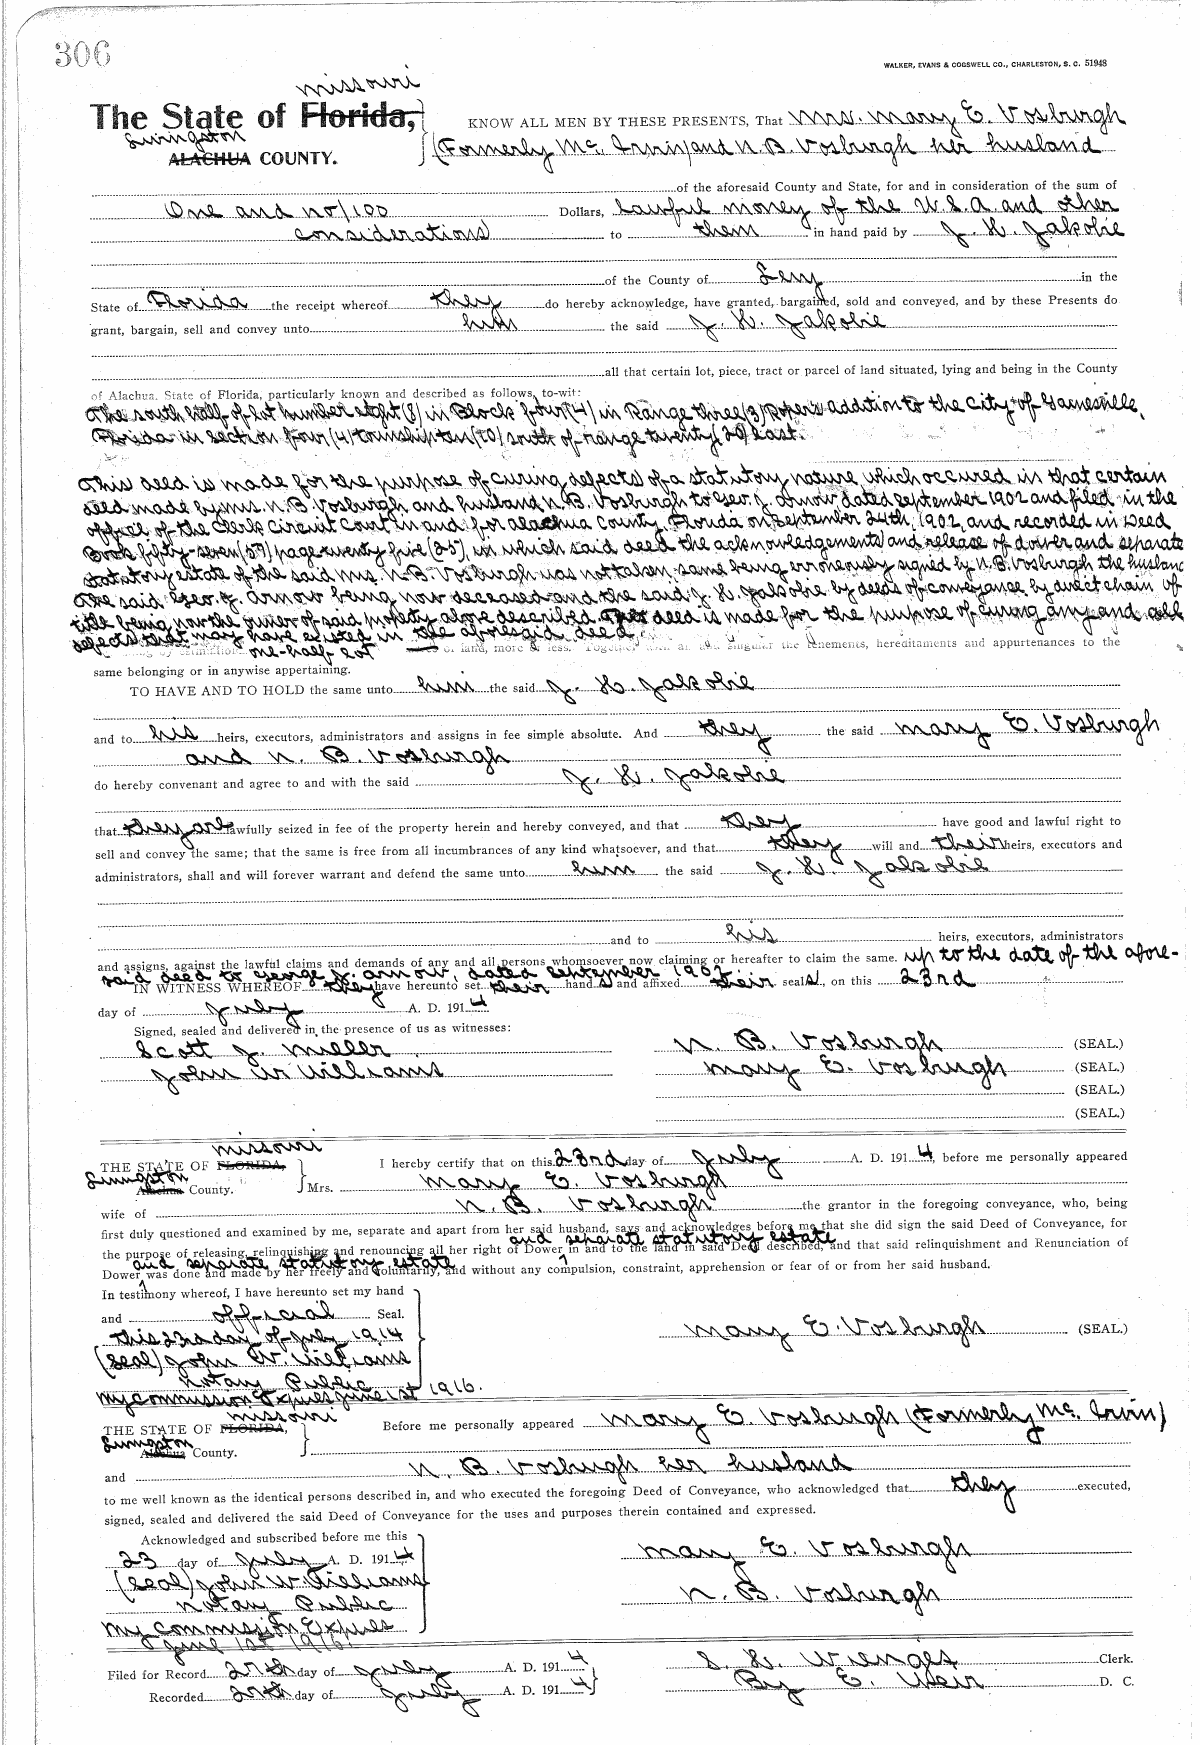 306
WALKER, EVANS & COGSWELL CO., CHARLESTON, S. C. 51948
Missouri
The State of Florida,
KNOW ALL MEN BY THESE PRESENTS, That Mrs. Mary E. Vosburgh
Livingston
ALACHUA COUNTY.
(Formerly Mc. Irvin) and N. B. Vosburgh her husband
of the aforesaid County and State, for and in consideration of the sum of
One and no/100 Dollars, Lawful money of the U.S.A and other
considerations to them in hand paid by J. H. Jakobie
of the County of Levy in the
State of Florida the receipt whereof they do hereby acknowledge, have granted, bargained, sold and conveyed, and by these Presents do
grant, bargain, sell and convey unto him the said J. H. Jakobie
all that certain lot, piece, tract or parcel of land situated, lying and being in the County
of Alachua, State of Florida, particularly known and described as follows, to-wit:
The south half of Lot number eight (8) in Block four (4) in Range three (3) Roper's addition to the City of Gainesville,
Florida in section four (4) township ten (10) south of range twenty (20) East.
This deed is made for the purpose of curing defects of a statutory nature which occured in that certain
deed made by Mrs. N. B. Vosburgh and husband N. B. Vosburgh to Geo. J. Arnow dated September 1902 and filed in the
office of the Clerk Circuit Court in and for Alachua County, Florida on September 24th, 1902, and recorded in Deed
Book fifty-seven (57) page twenty five (25), in which said deed the acknowledgements and release of dower and separate
statutory estate of the said Mrs. N. B. Vosburgh was not taken, same being erroneously signed by N. B. Vosburgh the husband
The said Geo. J. Arnow being now deceased and the said J. H. Jakobie by deeds of conveyance by direct chain of
title being now the owner of said property above described. This deed is made for the purpose of curing any and all
defects that may have existed in the aforesaid deed
one-half lot of land, more or less. Together with all and singular the tenements, hereditaments and appurtenances to the
same belonging or in anywise appertaining.
TO HAVE AND TO HOLD the same unto him the said J. H. Jakobie
and to his heirs, executors, administrators and assigns in fee simple absolute. And they the said Mary E. Vosburgh
and N. B. Vosburgh
do hereby convenant and agree to and with the said J. H. Jakobie
that they are lawfully seized in fee of the property herein and hereby conveyed, and that they have good and lawful right to
sell and convey the same; that the same is free from all incumbrances of any kind whatsoever, and that they will and their heirs, executors and
administrators, shall and will forever warrant and defend the same unto him the said J. H. Jakobie
and to his heirs, executors, administrators
and assigns, against the lawful claims and demands of any and all persons whomsoever now claiming or hereafter to claim the same. up to the date of the afore-
said deed to George J. Arnow, dated September 1902
IN WITNESS WHEREOF they have hereunto set their hands and affixed their seals, on this 23rd
day of July A. D. 1914
Signed, sealed and delivered in the presence of us as witnesses:
Scott J. Miller N. B. Vosburgh (SEAL.)
John W Williams Mary E. Vosburgh (SEAL.)
(SEAL.)
(SEAL.)
Missouri
THE STATE OF FLORIDA,
I hereby certify that on this 23rd day of July A. D. 1914, before me personally appeared
Livingston
Alachua County. Mrs. Mary E. Vosburgh
wife of N. B. Vosburgh the grantor in the foregoing conveyance, who, being
first duly questioned and examined by me, separate and apart from her said husband, says and acknowledges before me that she did sign the said Deed of Conveyance, for
and separate statutory estate
the purpose of releasing, relinquishing and renouncing all her right of Dower in and to the land in said Deed described, and that said relinquishment and Renunciation of
and separate statutory estate
Dower was done and made by her freely and voluntarily, and without any compulsion, constraint, apprehension or fear of or from her said husband.
In testimony whereof, I have hereunto set my hand
and official Seal.
this 23rd day of July 1914 Mary E. Vosburgh (SEAL.)
(Seal) John W. Williams
Notary Public
My commission Expires June 1st 1916.
Missouri
THE STATE OF FLORIDA,
Before me personally appeared Mary E. Vosburgh (Formerly Mc. Irvin)
Livingston
Alachua County.
and N. B. Vosburgh her husband
to me well known as the identical persons described in, and who executed the foregoing Deed of Conveyance, who acknowledged that they executed,
signed, sealed and delivered the said Deed of Conveyance for the uses and purposes therein contained and expressed.
Acknowledged and subscribed before me this
23 day of July A. D. 1914 Mary E. Vosburgh
(Seal) John W. Williams
Notary Public N. B. Vosburgh
My Commission Expires
June 1st 1916
Filed for Record 27th day of July A. D. 1914 S. H. Wienges Clerk.
Recorded day of July A. D. 1914 By E. Weir D. C.